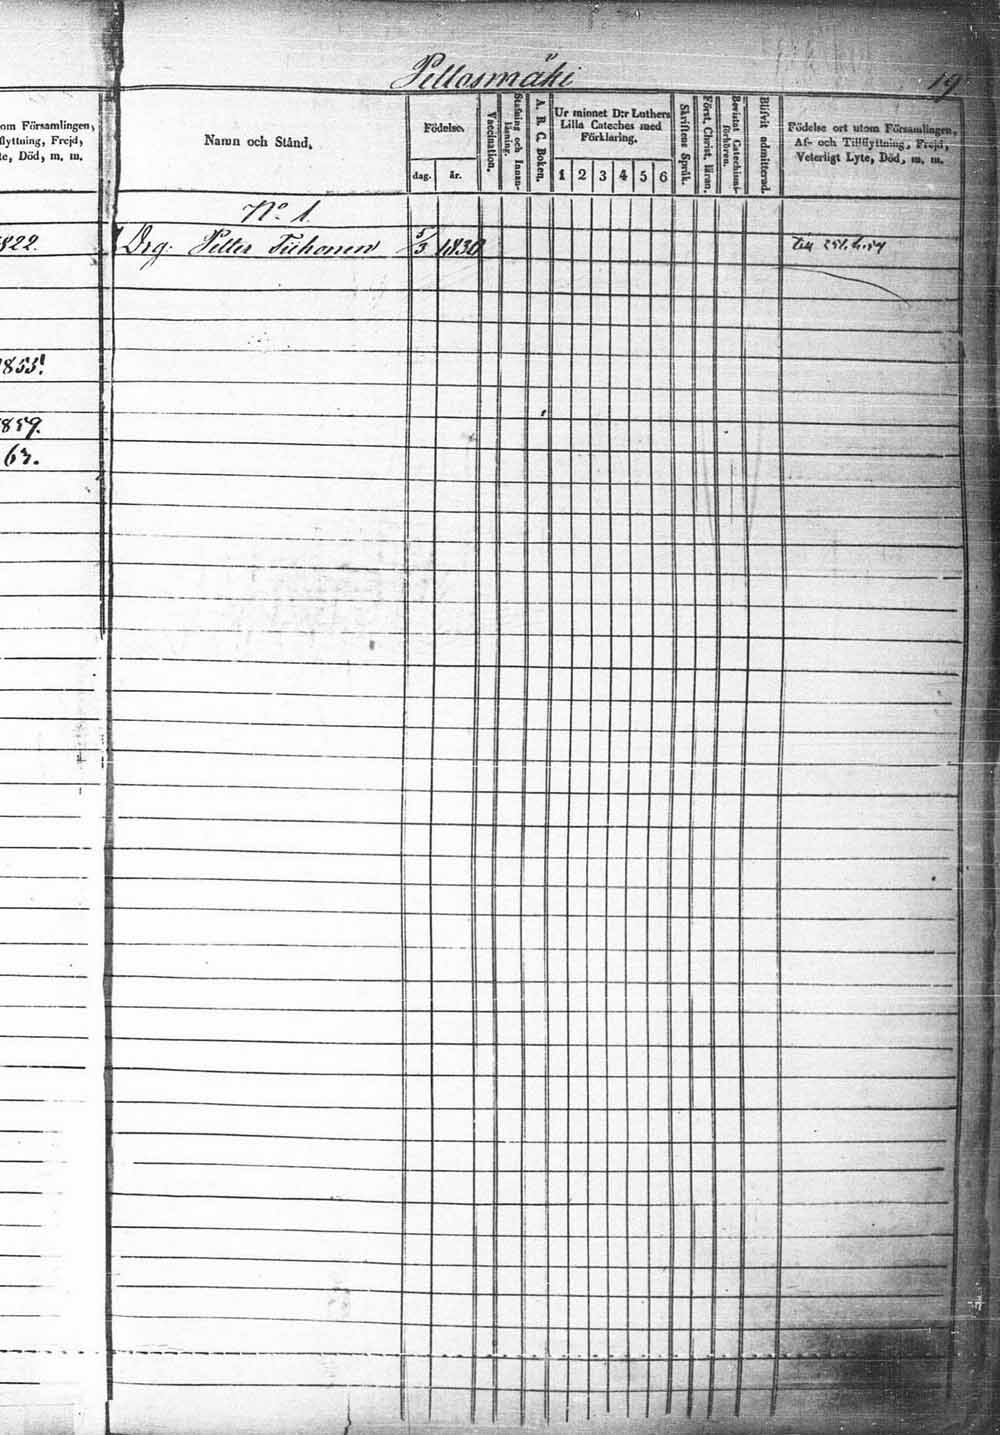 Pellosmäki 19
om Församlingen,
flyttning, Frejd,
te, Död, m. m.
Namn och Stånd.
Födelse.
dag. år.
Vaccination.
Stafning och Innan-
läsning.
A. B. C. Boken.
Ur minnet D:r Luthers
Lilla Cateches med
Förklaring.
1 2 3 4 5 6
Skriftens Språk.
Först. Christ. läran.
Bevistat Catechismi-
förhören.
Blifvit admitterad.
Födelse ort utom Församlingen,
Af- och Tillflyttning, Frejd,
Veterligt Lyte, Död, m. m.
No 1.
822. Drg. Petter Tiihonen 5/3 1830
855.
859.
63.